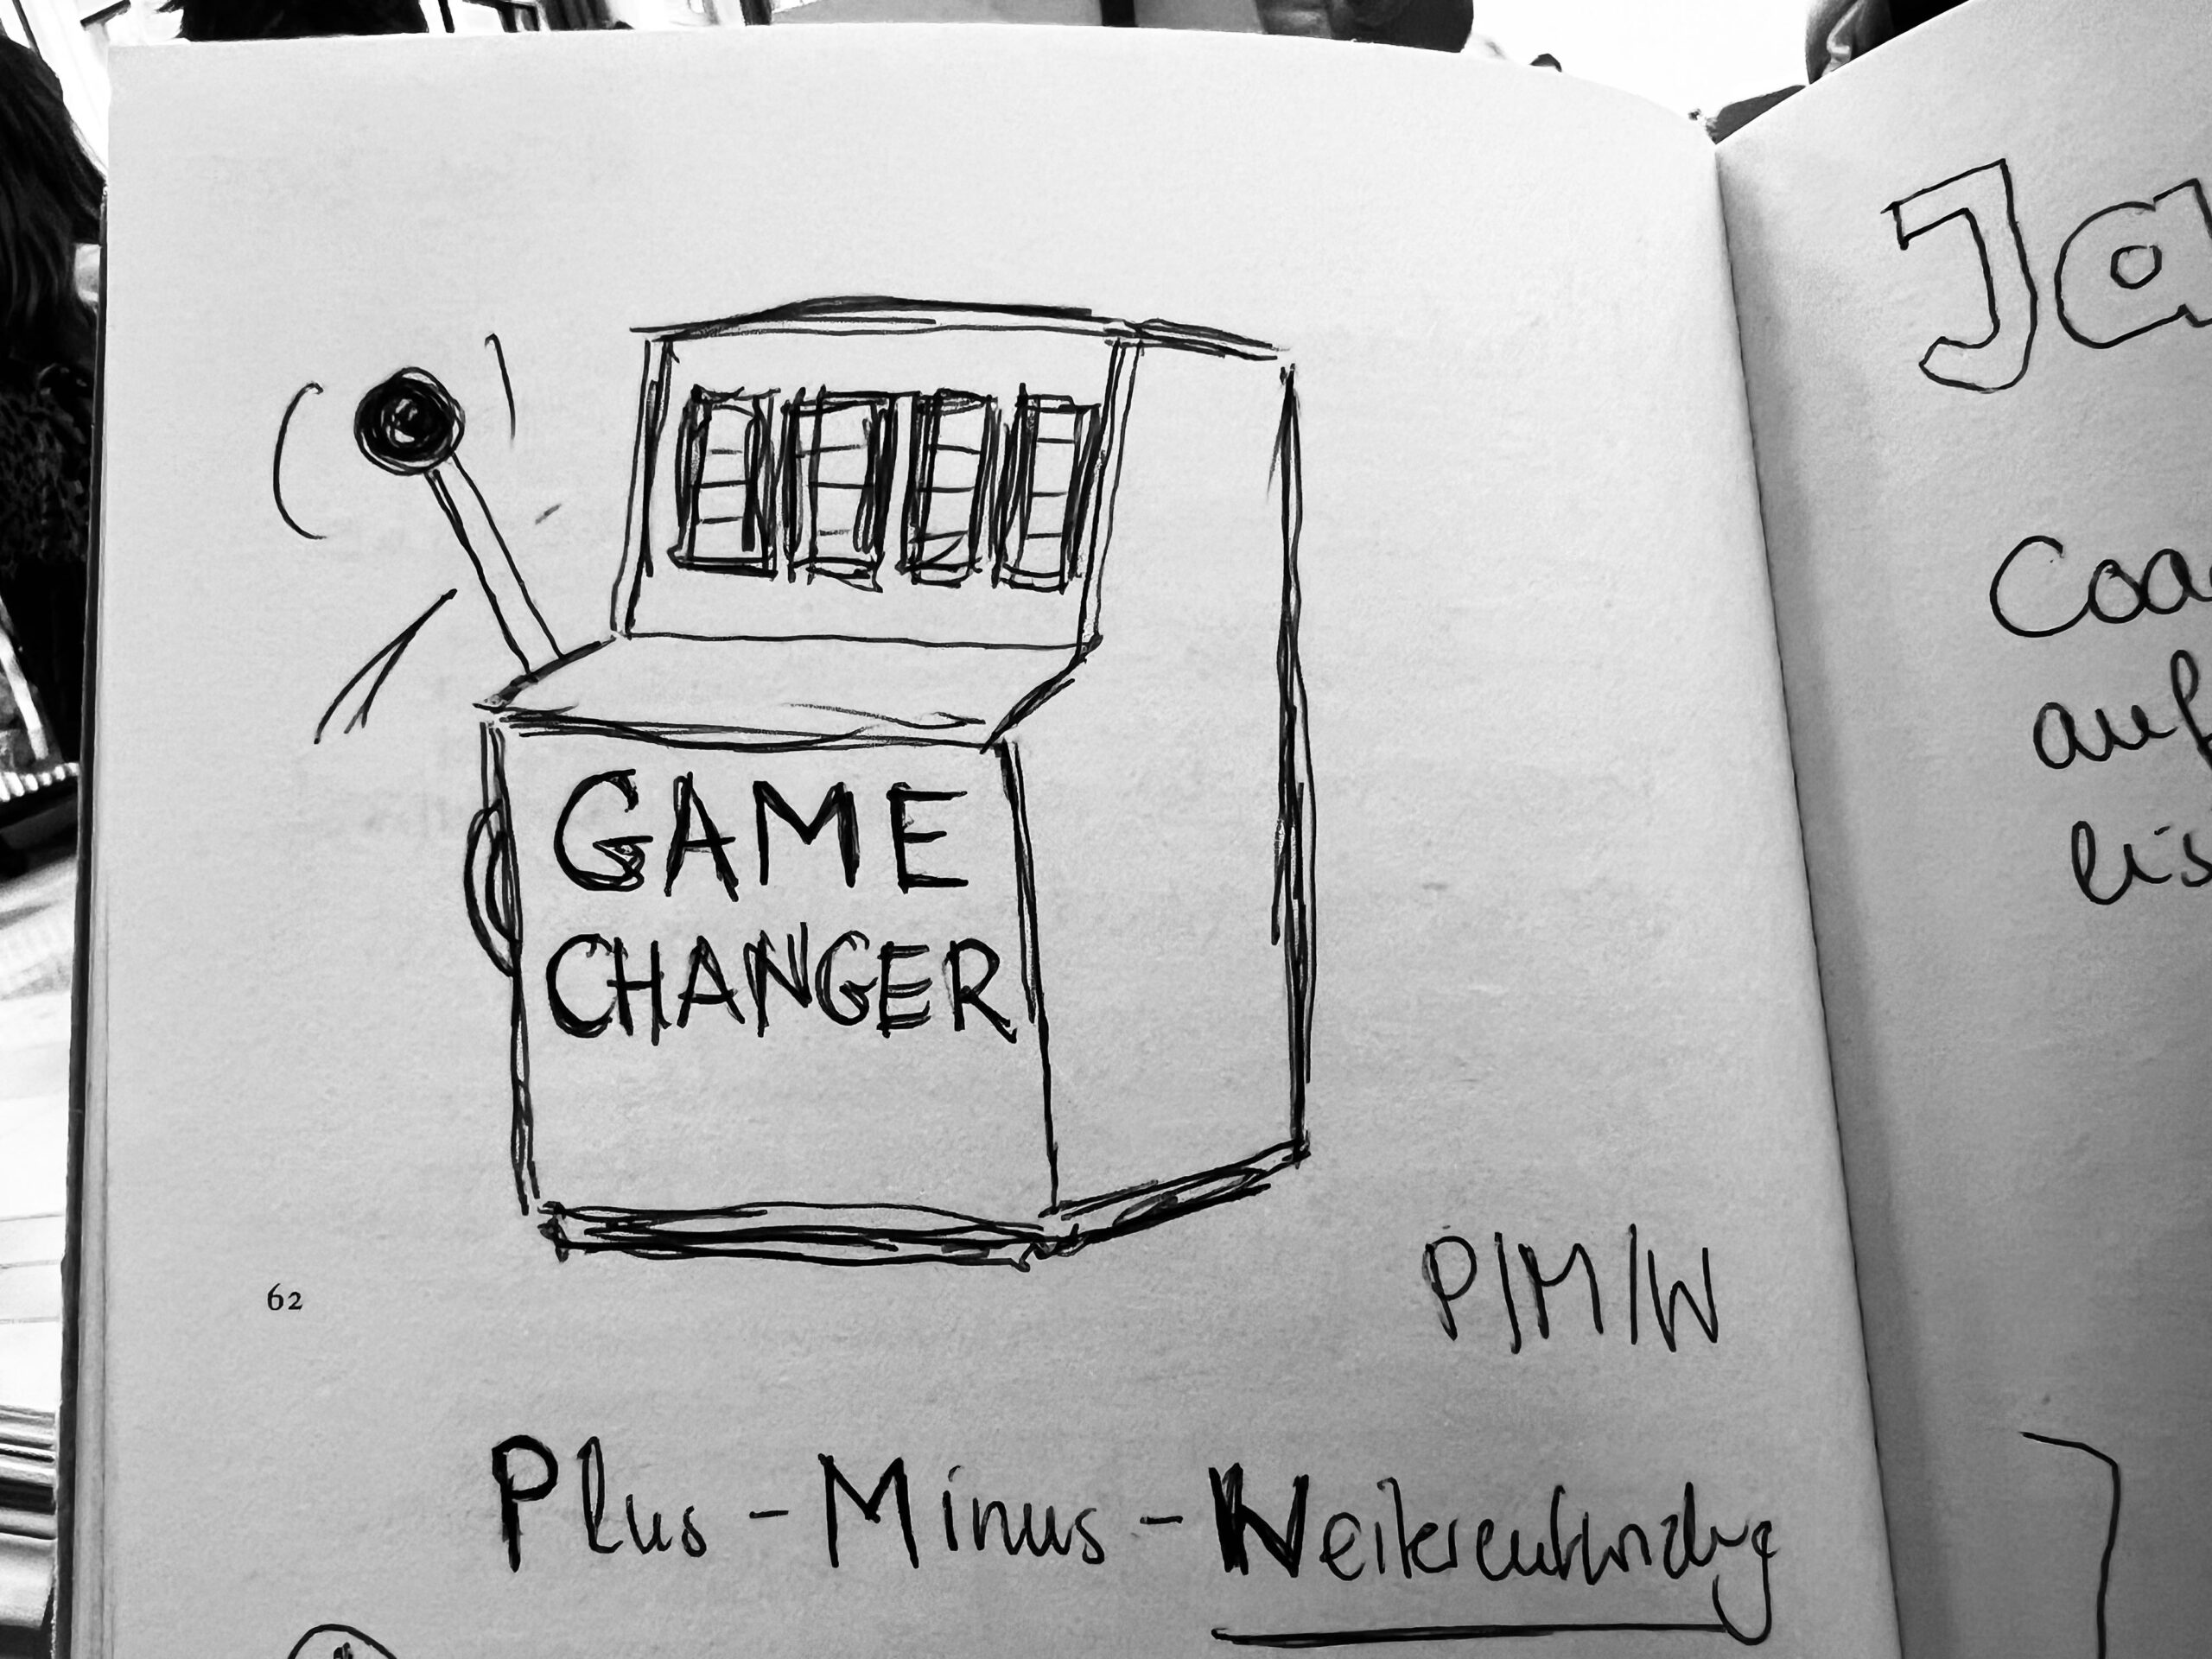 GAME
CHANGER
62
P/M/W
Plus - Minus - Weiterentwicklung
Ja
Coa
auf
lis